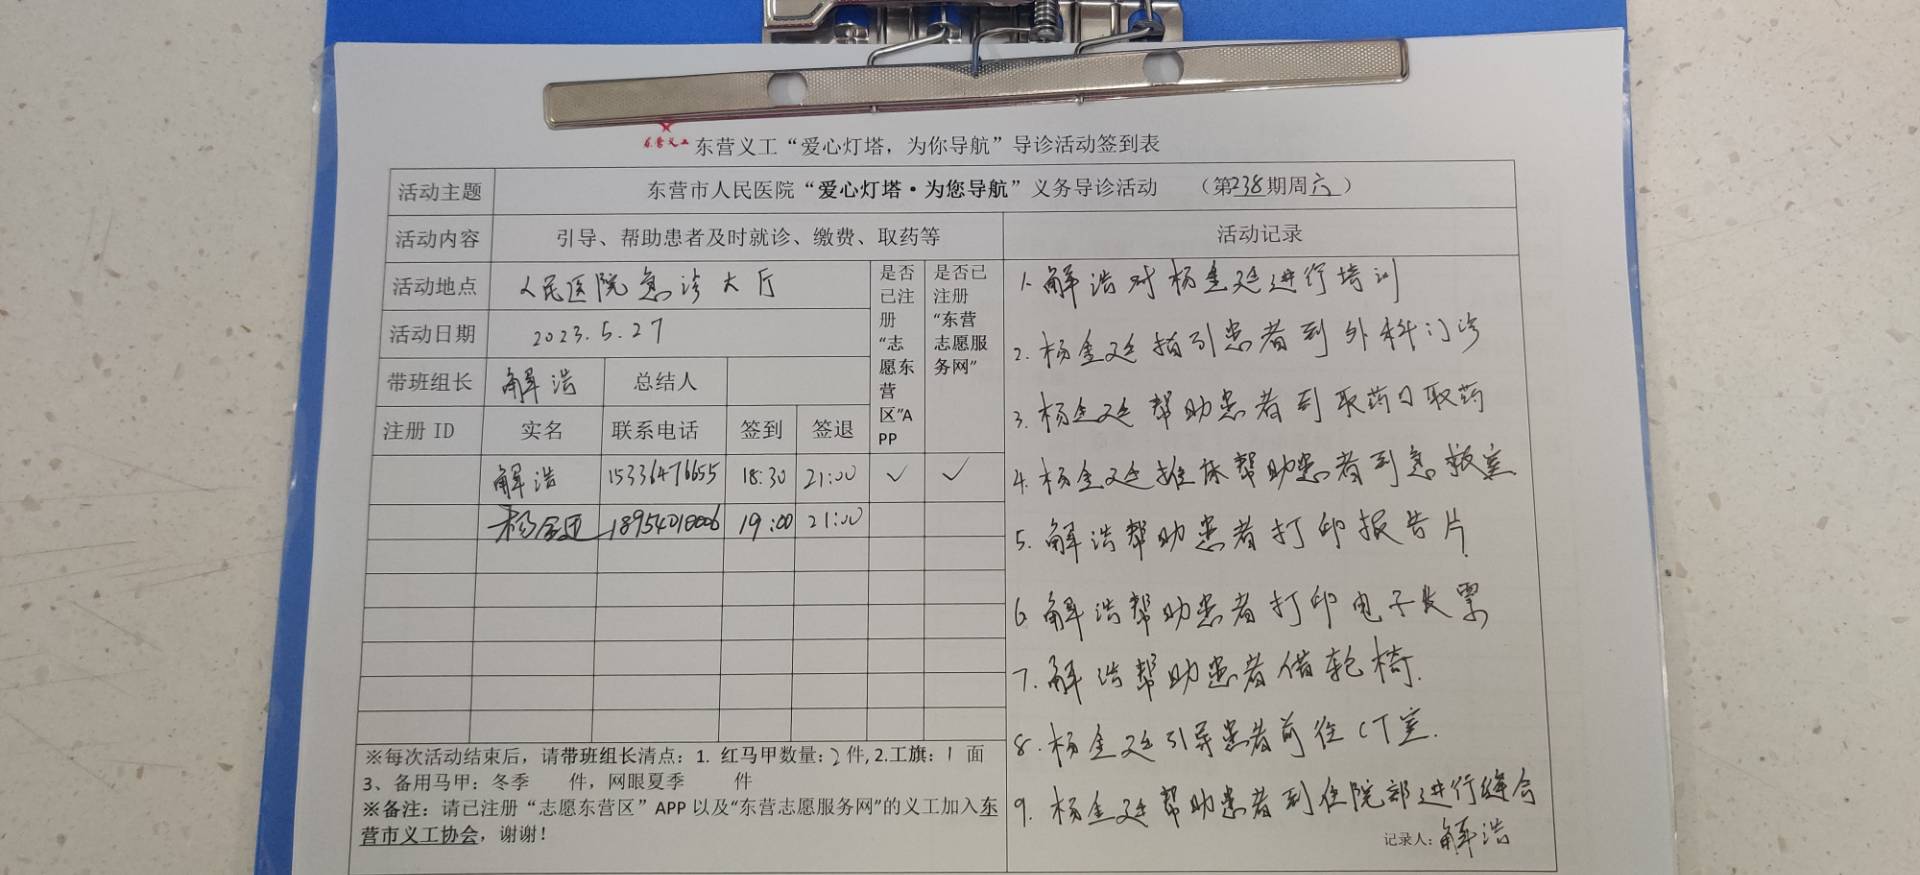 东营义工
东营义工“爱心灯塔，为你导航”导诊活动签到表
活动主题 东营市人民医院“爱心灯塔·为您导航”义务导诊活动 （第238期周六）
活动内容 引导、帮助患者及时就诊、缴费、取药等 活动记录
活动地点 人民医院急诊大厅
活动日期 2023.5.27
带班组长 解浩 总结人
是否已注册“志愿东营区”APP
是否已注册“东营志愿服务网”
注册 ID 实名 联系电话 签到 签退
解浩 15336476655 18:30 21:00 ✓ ✓
杨金廷 18954010006 19:00 21:00
※每次活动结束后，请带班组长清点：1. 红马甲数量：2件, 2.工旗：1 面
3、备用马甲：冬季 件，网眼夏季 件
※备注：请已注册“志愿东营区”APP 以及“东营志愿服务网”的义工加入东
营市义工协会，谢谢！
1. 解浩对杨金廷进行培训
2. 杨金廷指引患者到外科门诊
3. 杨金廷帮助患者到取药口取药
4. 杨金廷推床帮助患者到急救室
5. 解浩帮助患者打印报告片.
6. 解浩帮助患者打印电子发票
7. 解浩帮助患者借轮椅.
8. 杨金廷引导患者前往CT室.
9. 杨金廷帮助患者到住院部进行缝合
记录人：解浩